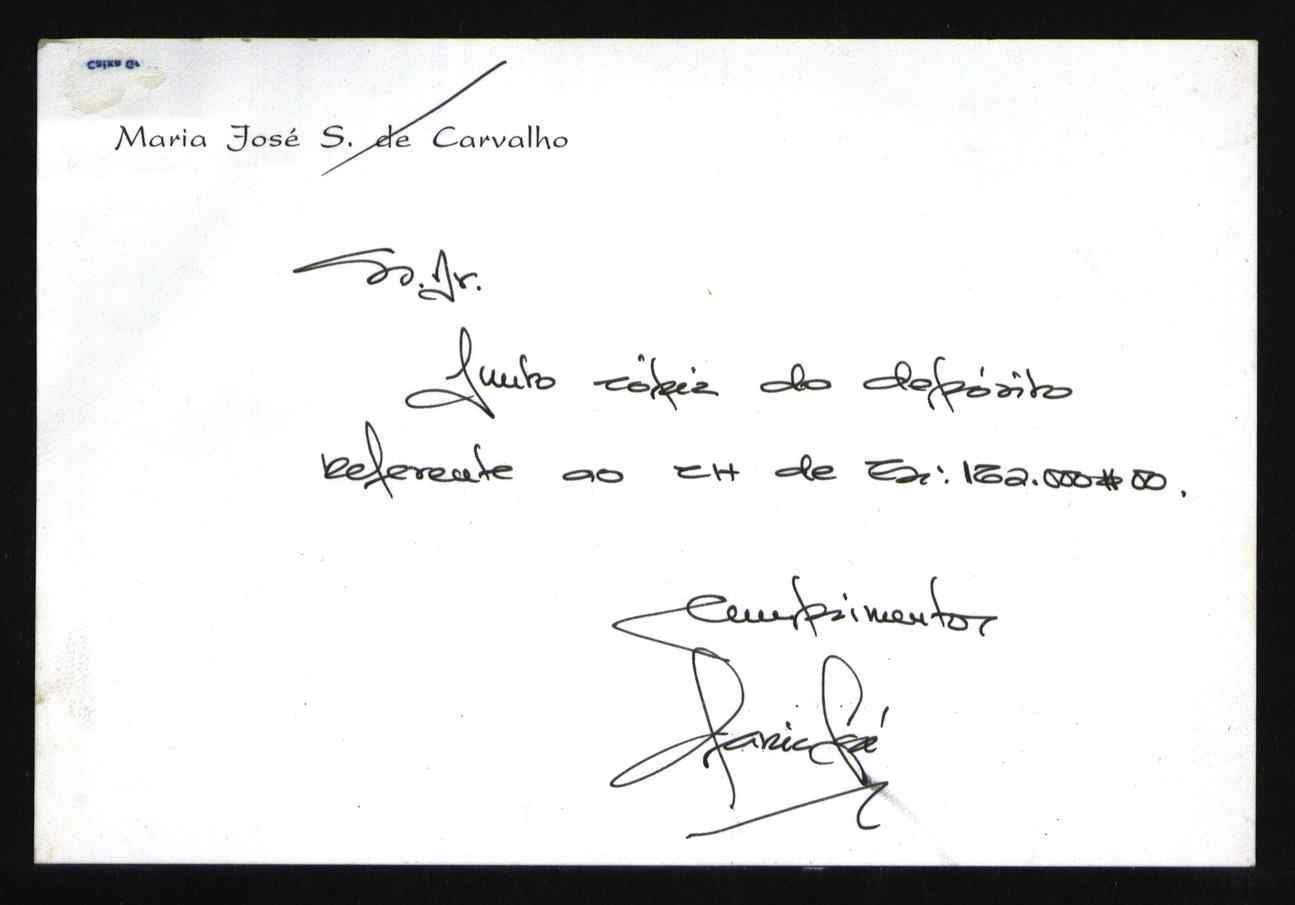 Maria José S. de Carvalho
Jr.
Junto cópia do depósito
referente ao CH de Cz: 132.000#00.
Cumprimentos
Maria José